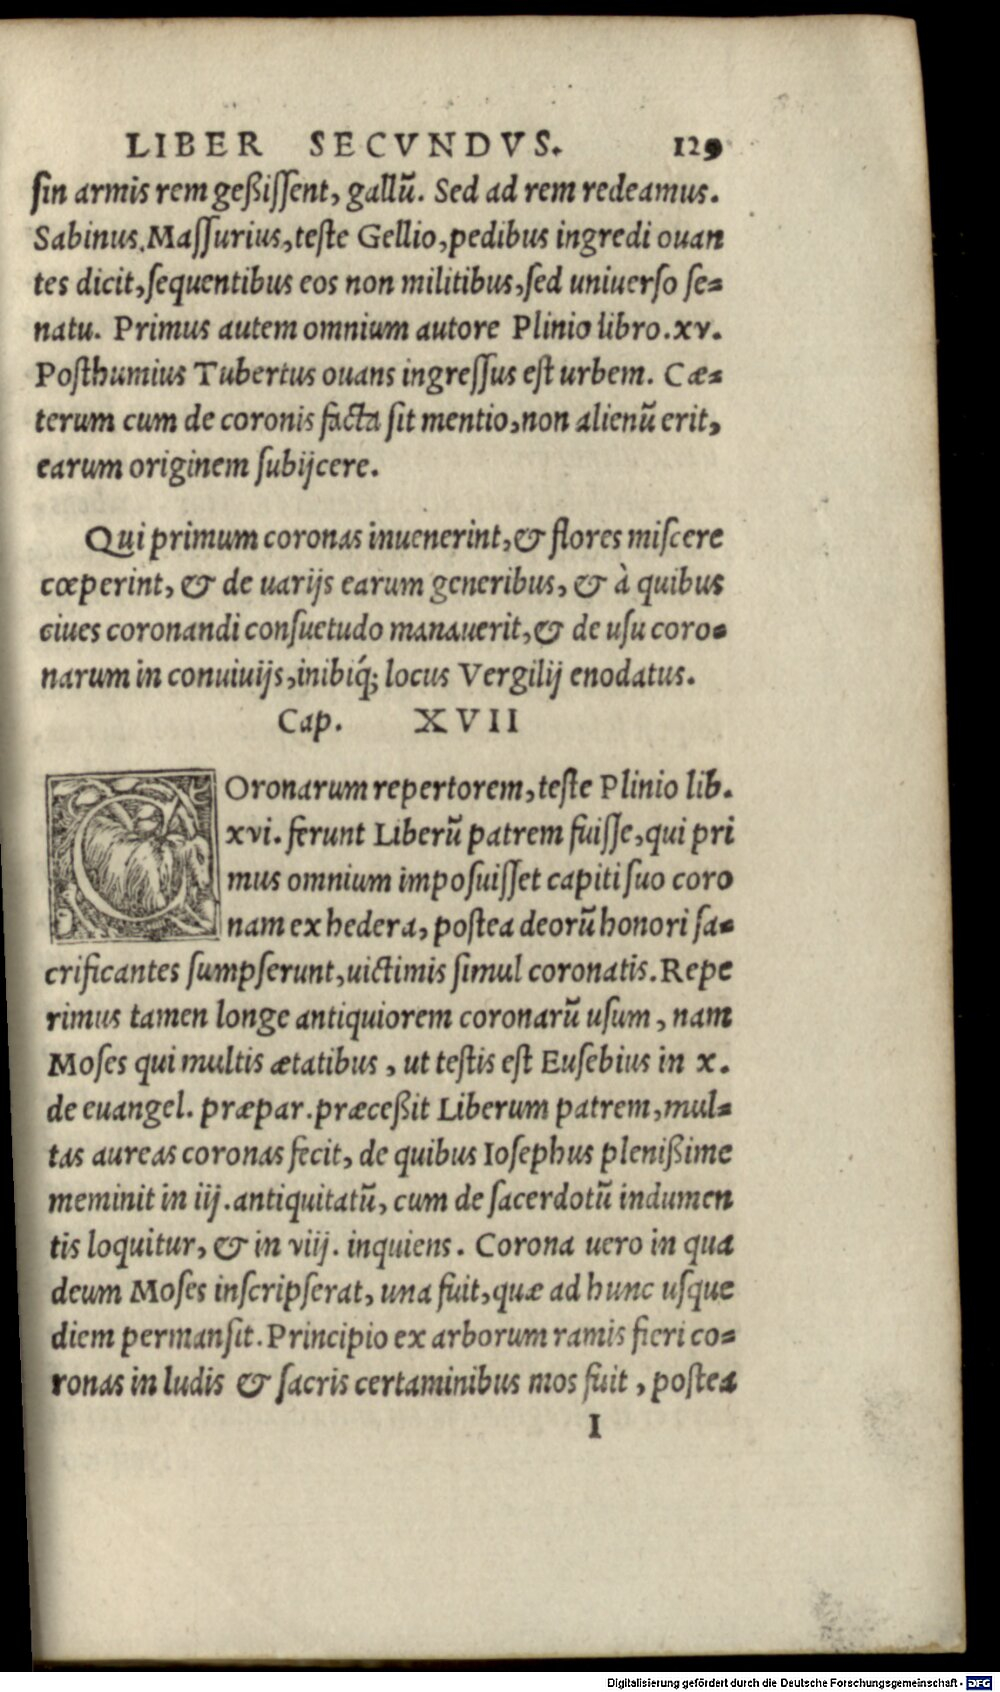 LIBER SECVNDVS. 129
ſin armis rem geßiſſent, gallū. Sed ad rem redeamus.
Sabinus.Maſſurius,teſte Gellio,pedibus ingredi ouan
tes dicit,ſequentibus eos non militibus,ſed uniuerſo ſe=
natu. Primus autem omnium autore Plinio libro.xv.
Poſthumius Tubertus ouans ingreſſus eſt urbem. Cæ=
terum cum de coronis facta ſit mentio,non alienū erit,
earum originem ſubijcere.
Qui primum coronas inuenerint,& flores miſcere
cœperint, & de uarijs earum generibus, & à quibus
ciues coronandi conſuetudo manauerit,& de uſu coro=
narum in conuiuijs,inibiq́; locus Vergilij enodatus.
Cap. XVII
COronarum repertorem,teſte Plinio lib.
xvi. ferunt Liberū patrem fuiſſe,qui pri
mus omnium impoſuiſſet capiti ſuo coro
nam ex hedera, poſtea deorū honori ſa=
crificantes ſumpſerunt,uictimis ſimul coronatis.Repe
rimus tamen longe antiquiorem coronarū uſum, nam
Moſes qui multis ætatibus, ut teſtis eſt Euſebius in x.
de euangel. præpar.præceßit Liberum patrem,mul=
tas aureas coronas fecit, de quibus Ioſephus pleniſſime
meminit in iij.antiquitatū, cum de ſacerdotū indumen
tis loquitur, & in viij. inquiens. Corona uero in qua
deum Moſes inſcripſerat, una fuit,quæ ad hunc uſque
diem permanſit.Principio ex arborum ramis fieri co=
ronas in ludis & ſacris certaminibus mos fuit, poſtea
I
Digitalisierung gefördert durch die Deutsche Forschungsgemeinschaft - DFG